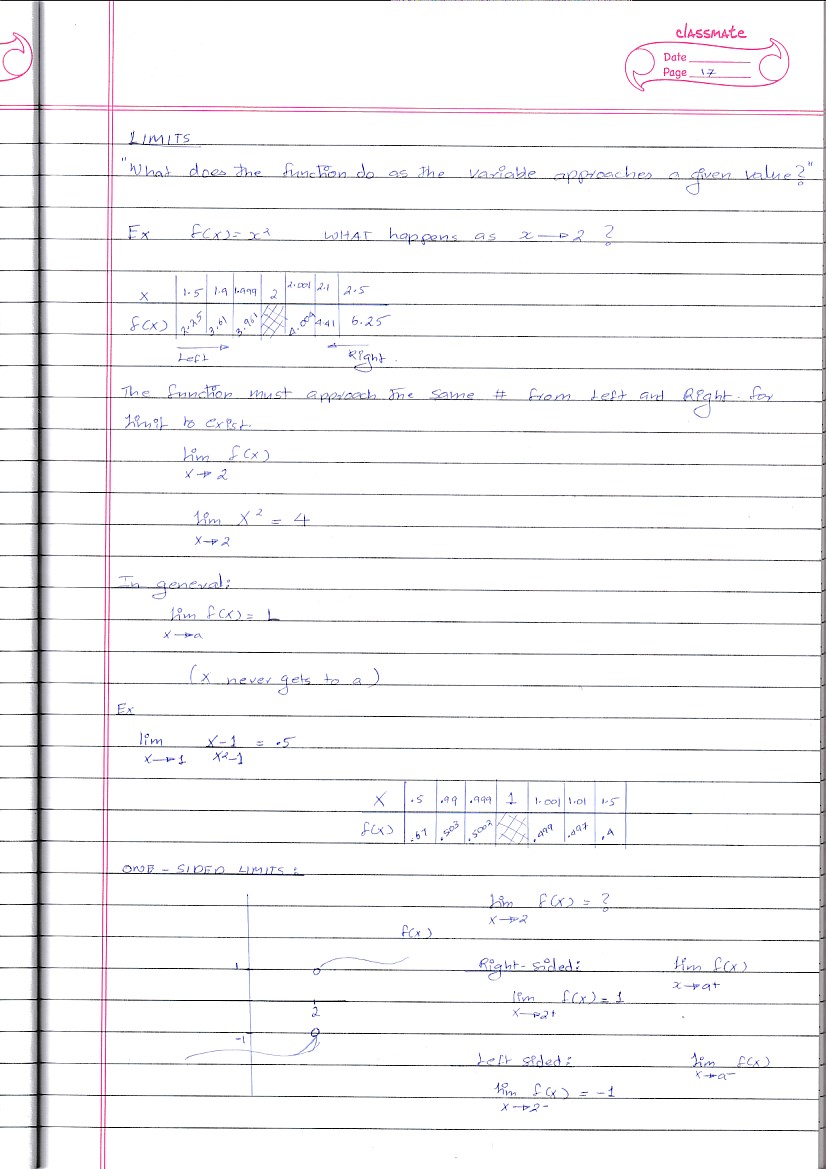 classmate
Date
Page 17
LIMITS
"What does the function do as the variable approaches a given value?"
Ex f(x)= x² WHAT happens as x → 2 ?
x 1.5 1.9 1.999 2 2.001 2.1 2.5
f(x) 2.25 3.61 4.41 6.25
Left Right.
The function must approach the same # from Left and Right. for
limit to exist.
lim f(x)
x→2
lim x² = 4
x→2
In general:
lim f(x) = L
x→a
(x never gets to a)
Ex
lim x-1 = .5
x→1 x²-1
x .5 .99 .999 1 1.001 1.01 1.5
f(x) .67 .503 .5002 .499 .497 .4
ONE - SIDED LIMITS:
lim f(x) = ?
x→2
f(x)
1
Right-sided: lim f(x)
x→a+
lim f(x) = 1
x→2+
2
-1
Left sided: lim f(x)
x→a-
lim f(x) = -1
x→2-